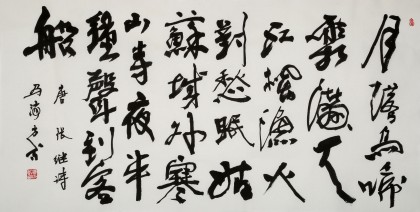 月落烏啼
霜滿天
江楓漁火
對愁眠姑
蘇城外寒
山寺夜半
鐘聲到客
船
唐 张继詩